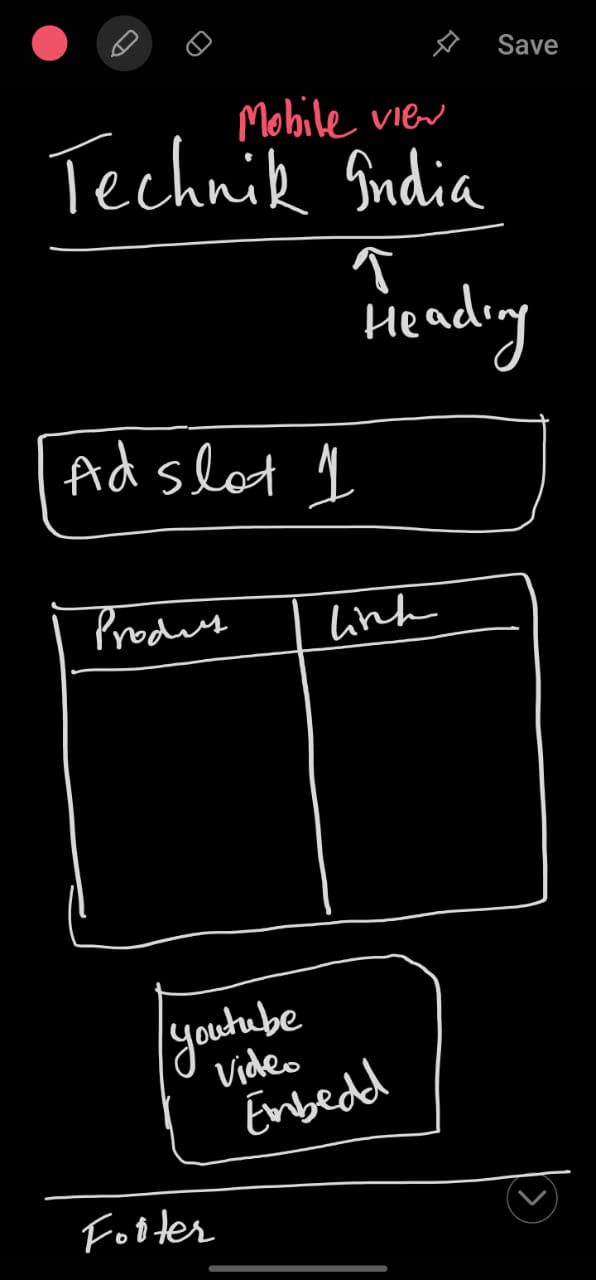 Save
Mobile view
Technik India
Heading
Ad slot 1
Product Link
Youtube
Video
Embedd
Footer